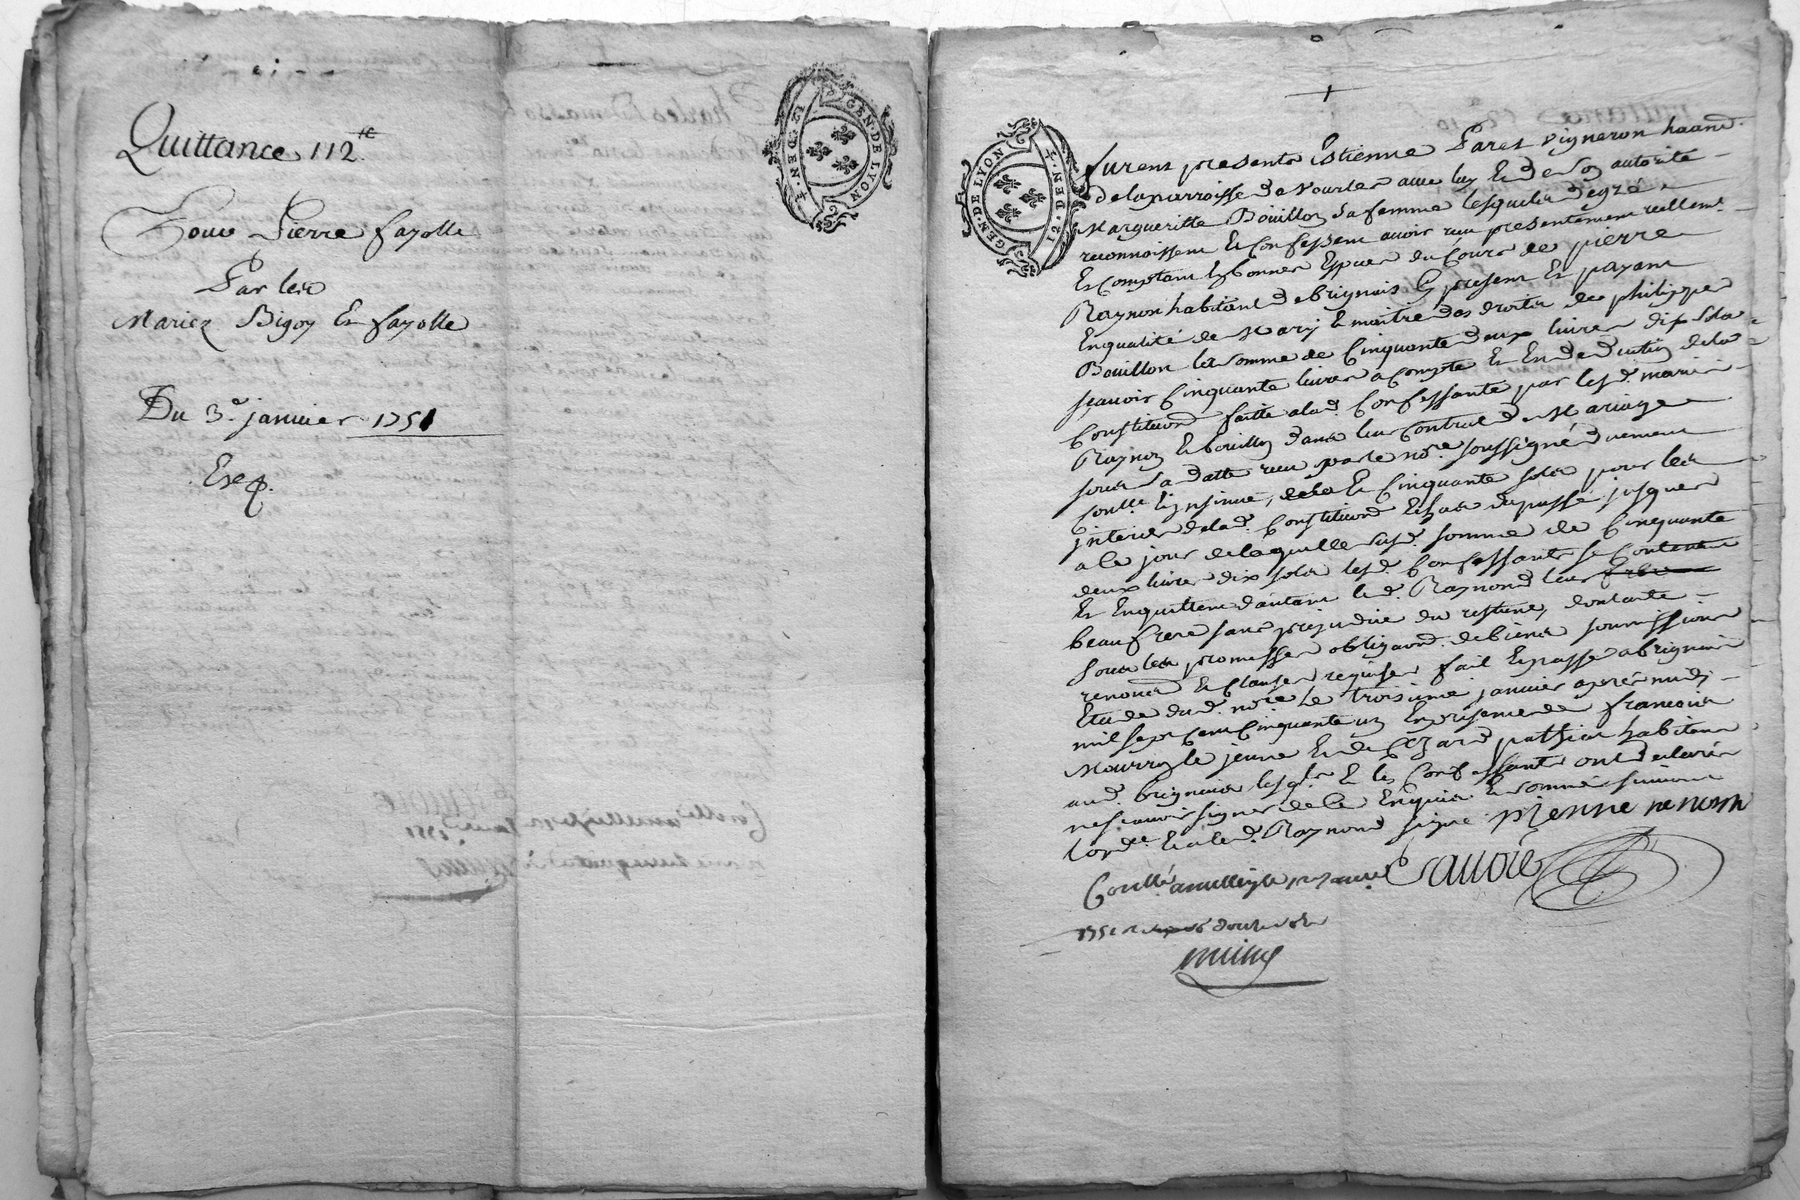 Quittance 112.tt
Pour Pierre fayolle
Par les
Mariez Bigoy Et fayolle
Du 3.e janvier 1751
Exp.
GEN·DE·LYON
2 S DEN·4
GEN·DE·LYON
12 S DEN·4
furent presents Estienne Paret vigneron haband.
de la parroisse de vourles avec luy Et de son autorité
Margueritte Bouillon sa femme lesquels de gré
reconnoissent Et Confessent avoir reçu presentement reellemt.
Et Comptant En bonnes Especes du Cours de pierre
Raynon habitant de brignais Cy present Et payant
En qualité de Mary Et maitre des droits de philippe
Bouillon la somme de Cinquante deux livres dix sols
sçavoir Cinquante livres a Compte Et En deduction de la
Constitution faitte a lad. Confessante par lesd. mariés
Raynon Et bouillon dans leur Contract de Mariage
sous sa datte reçu par le nore. soussigné duement
Conllé. Et insinué, Et Cinquante sols pour les
interets de lad. Constitution Echus du passé jusques
a Ce jour de laquelle susd. somme de Cinquante
deux livres dix sols lesd. Confessants se Contentent
Et En quittent d'autant led. Raynond leur
beaufrere sans prejudice du restant, dont acte
sous les promesses obligaond. de biens soumissions
renonond Et Clauses requises fait Et passé a brignais
Etude dud. nore Le troisieme janvier apres midi
mil sept Cent Cinquante un En presence de françois
Mourry le jeune Et de Cezard pathier habitans
aud. brignais lesqls Et les Confessants ont declaré
ne sçavoir signer de Ce Enquis Et sommés suivant
l'ordce. Et a led. Raynond signé. pierre renom
Conllé a millery le 1751 Cravore